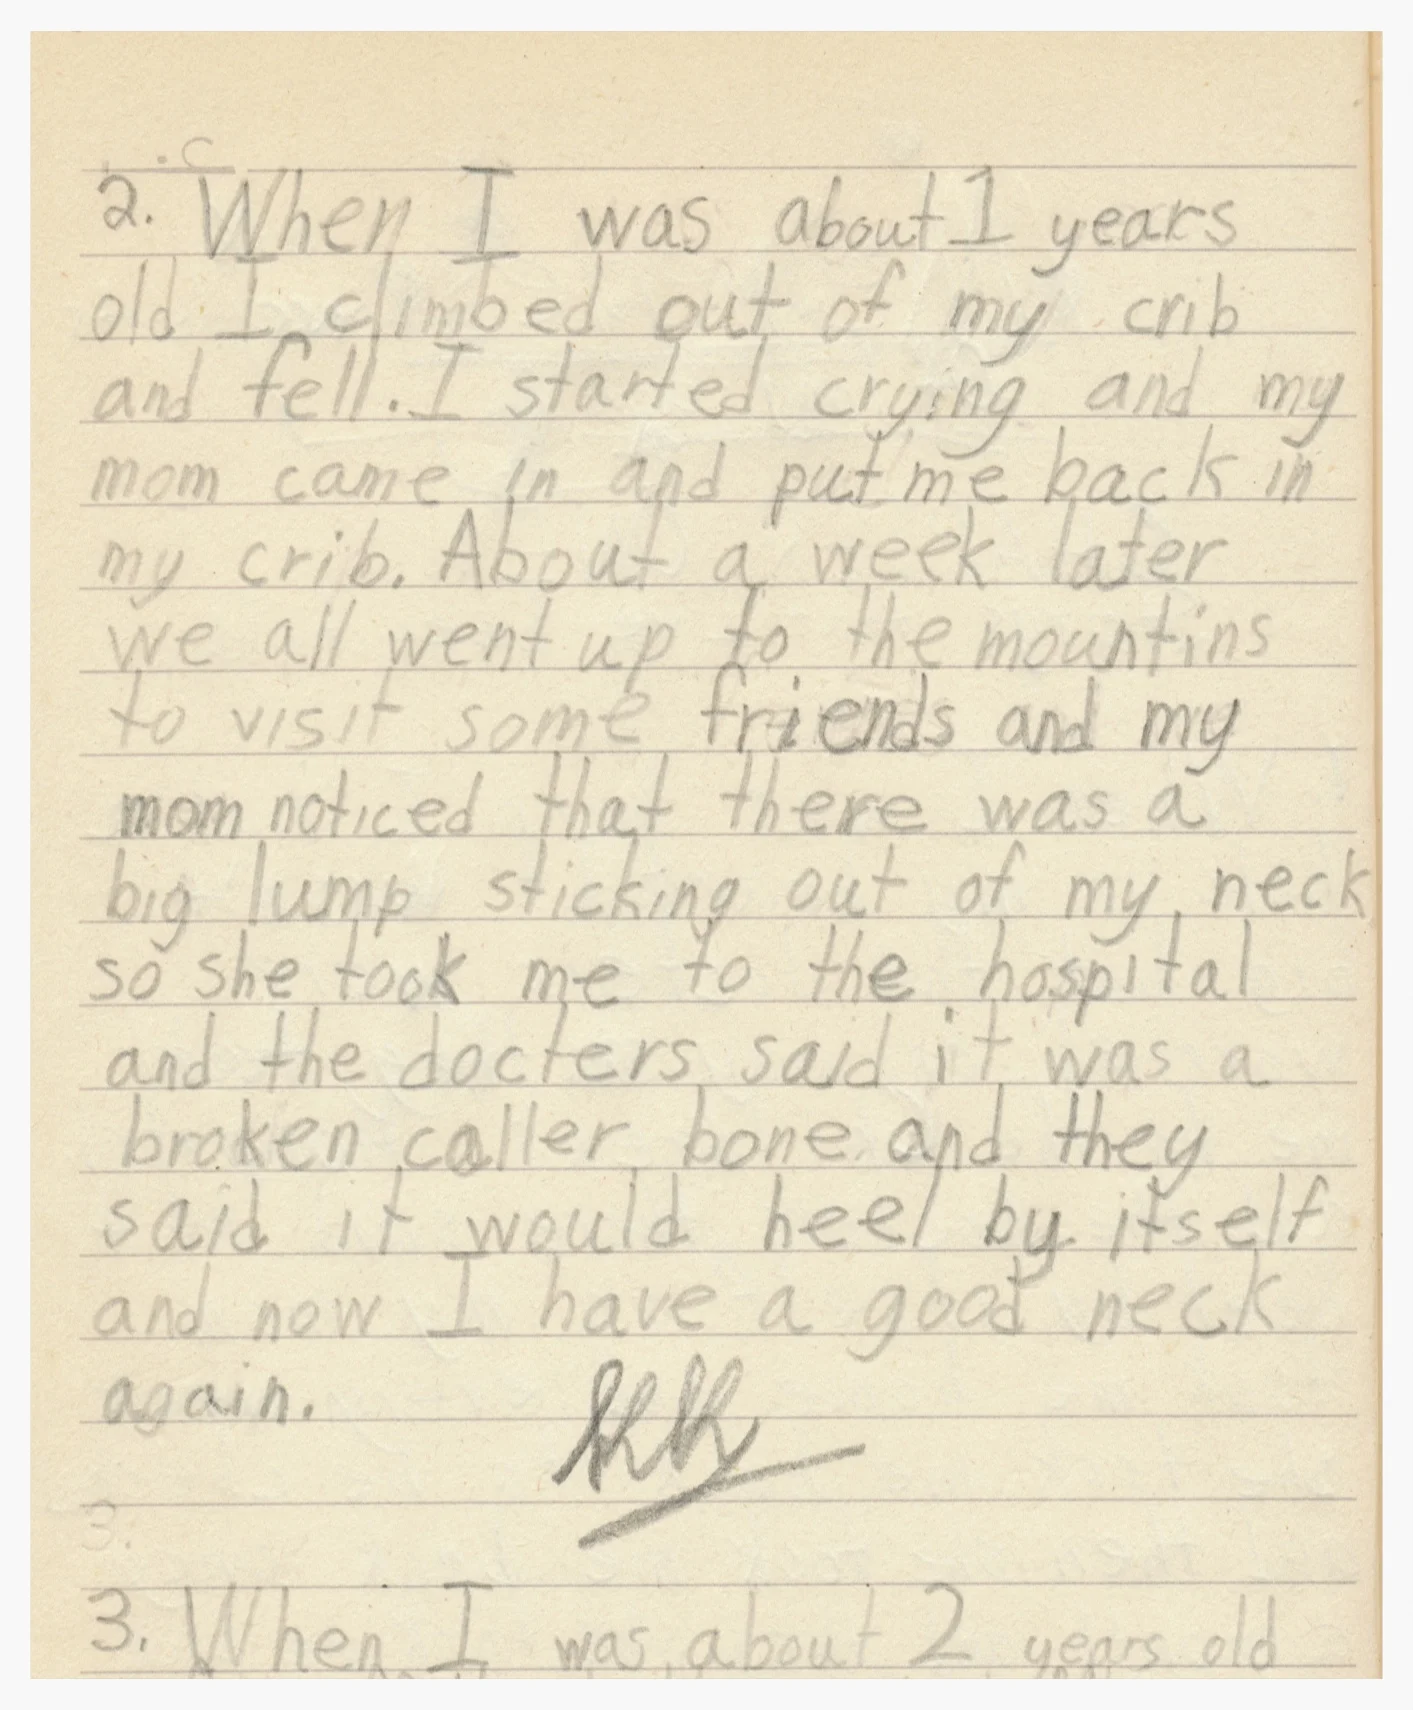 2. When I was about 1 years
old I climbed out of my crib
and fell. I started crying and my
mom came in and put me back in
my crib. About a week later
we all went up to the mountins
to visit some friends and my
mom noticed that there was a
big lump sticking out of my neck
so she took me to the hospital
and the docters said it was a
broken caller bone and they
said it would heel by itself
and now I have a good neck
again.
3.
3. When I was about 2 years old